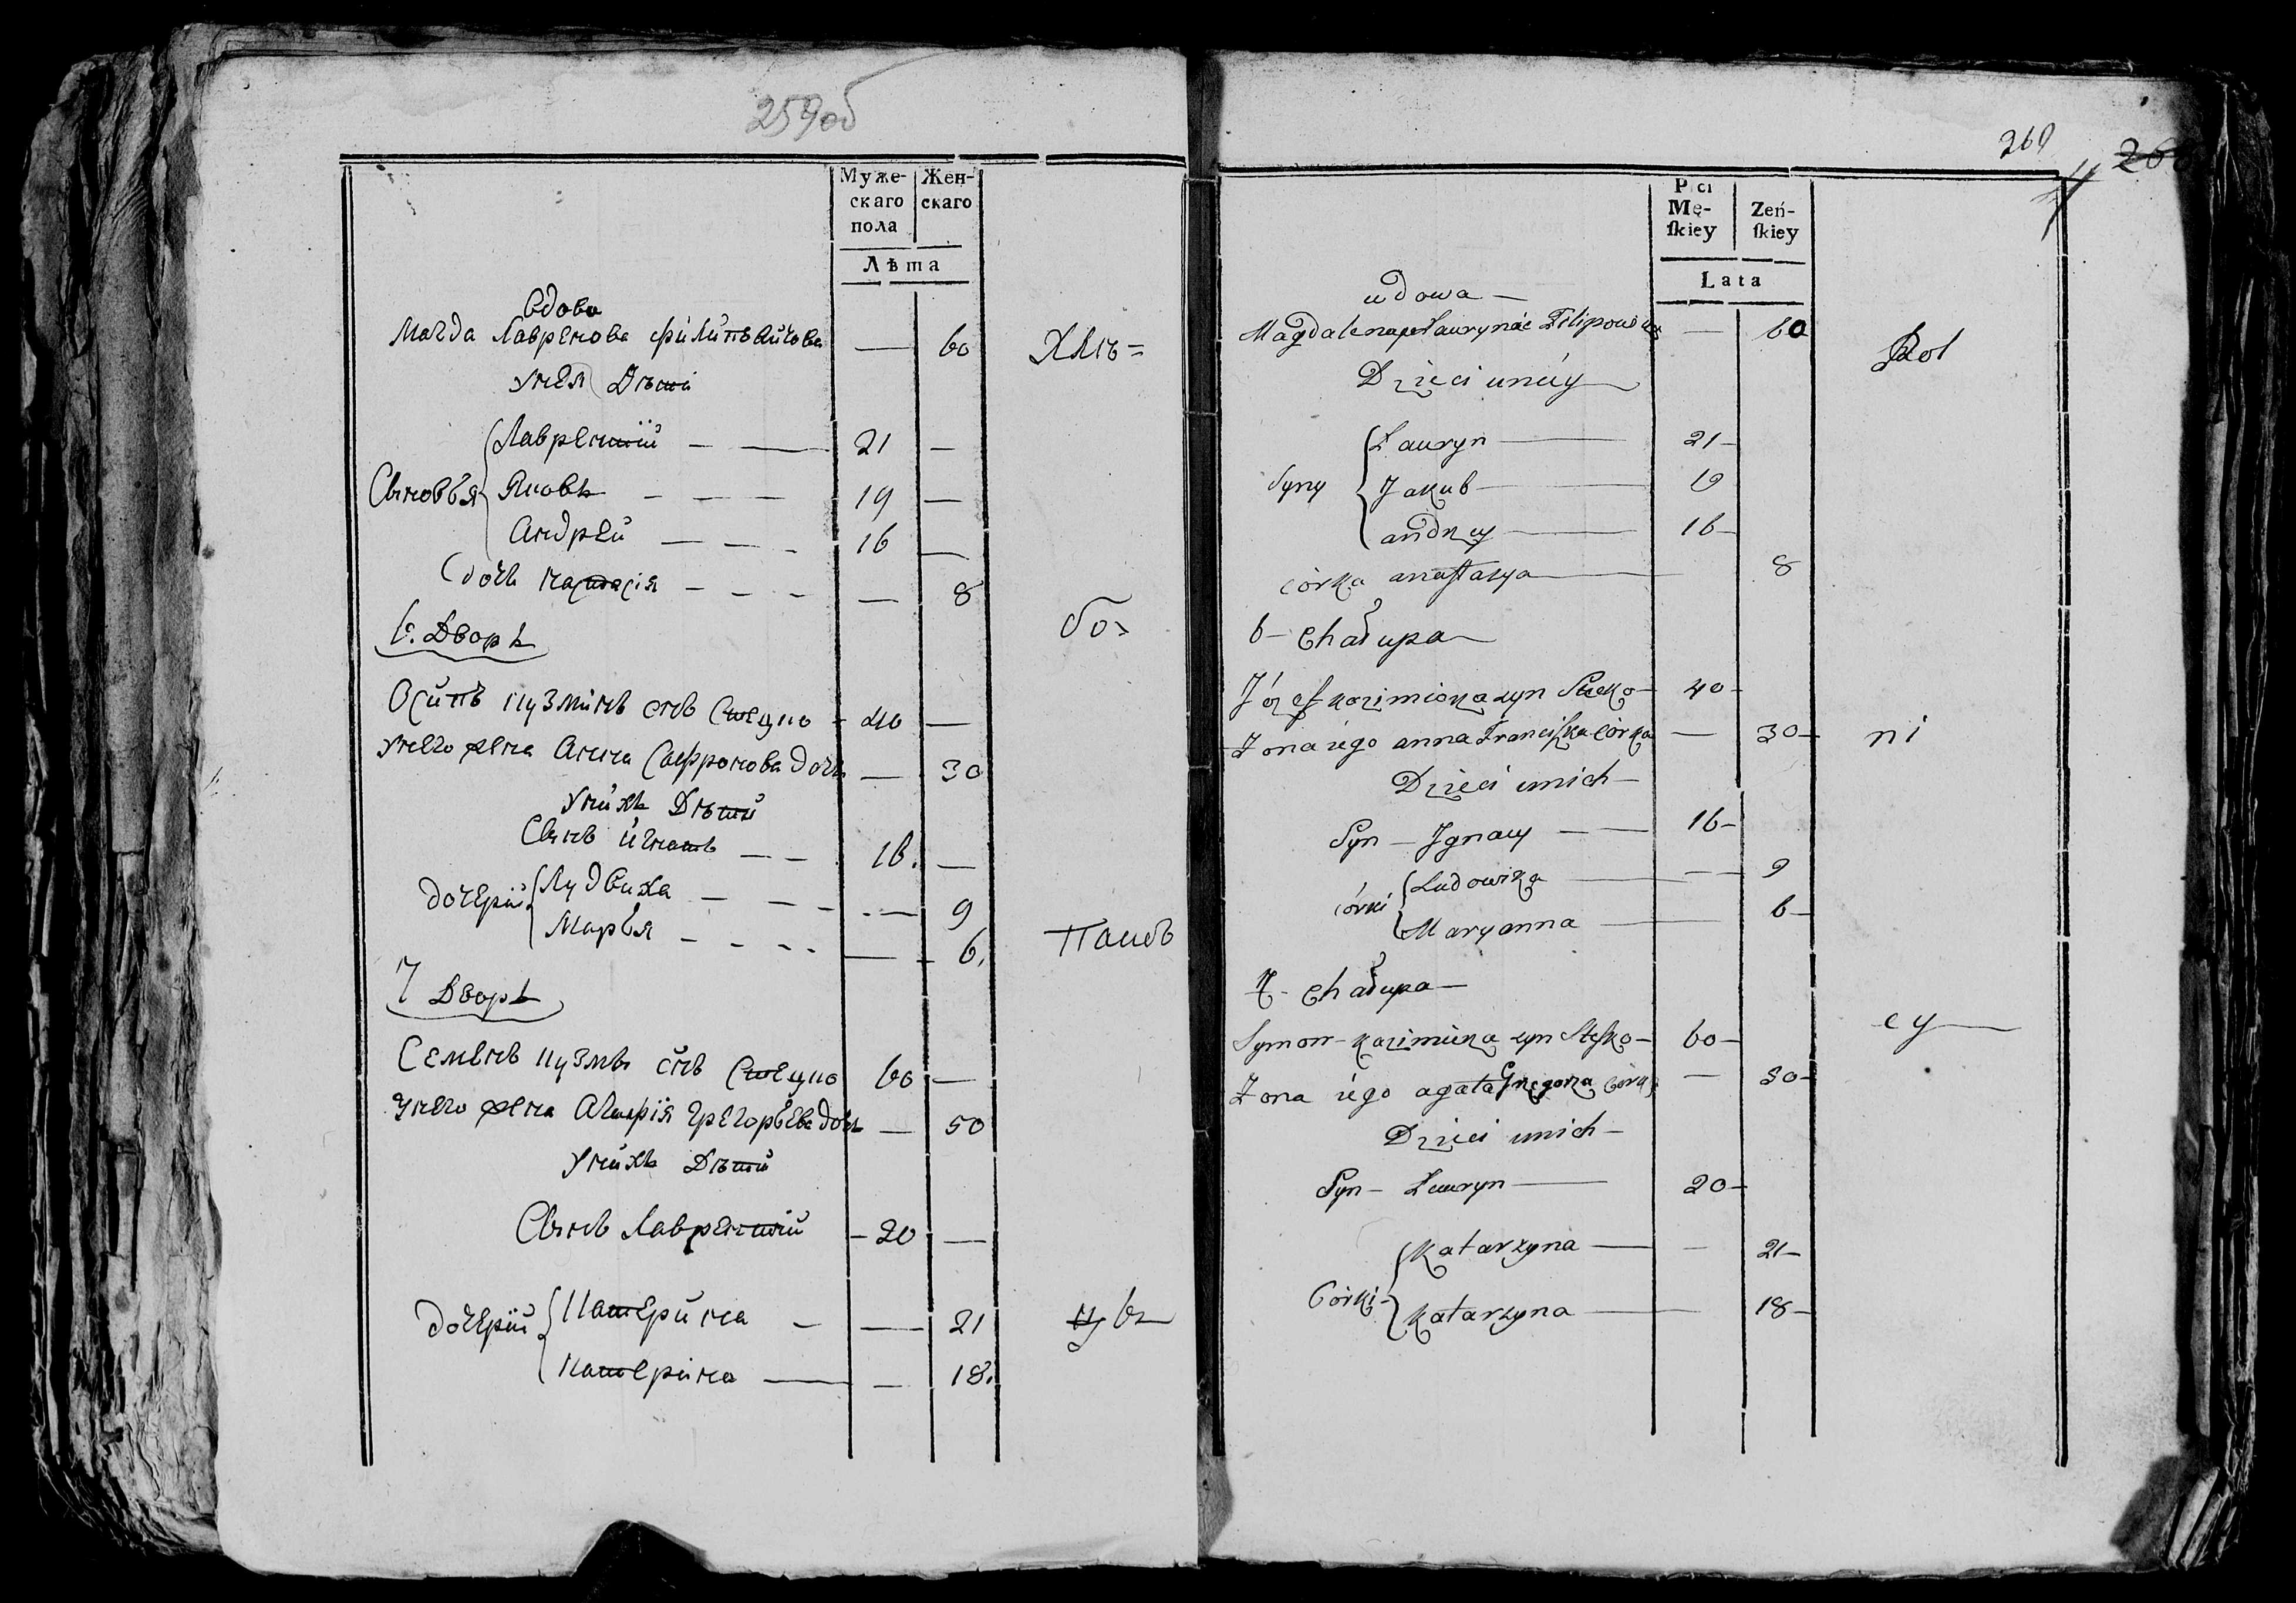 259об
Муже-
скаго
пола
Жен-
скаго
Лѣта
Вдова
Магда Лавренова Филиповичова — 60
ХлѢ=
у нея Дѣти
Сыновья
Лаврентій — — 21 —
Яковъ — — — 19 —
Андрей — — — 16 —
дочь Настасія — — — — 8
бо=
6. Дворъ
Осипъ Кузминъ снъ Стецко - 40 —
у него жена Анна Сафронова дочь — 30
у нихъ Дѣти
Сынъ Игнатъ — — 16. —
дочери
Лудвика — — — — 9
Марья — — — — 6.
ПашѢ
7 Дворъ
Семенъ Кузмы снъ Стецко 60 —
у него жена Агафія Грегорьева дочь — 50
у нихъ Дѣти
Сынъ Лаврентій — 20 —
дочери
Катерина — — 21
цы
Катерина — — 18.
260
Płci
Mę-
ſkiey
Zeń-
ſkiey
Lata
wdowa —
Magdalena Łauryna Filipowicza — 60
Rol
Dzieci u niéy
Syny
Łauryn — 21—
Jakub — 19
andrzey — 16—
córka anaſtazya — 8
6— Chałupa
Józef kazimierza syn Stecko— 40—
Żona iego anna Franciſzka córka — 30—
ni
Dzieci u nich—
Syn — Jgnacy — — 16—
córki
Ludowika — — 9
Maryanna — 6—
7— Chałupa—
cy
Symon kazimierza syn Stecko— 60—
Żona iego agata Grzegorza córka — 50—
Dzieci u nich—
Syn — Łauryn — 20—
Córki—
Katarzyna — — 21—
Katarzyna — 18—